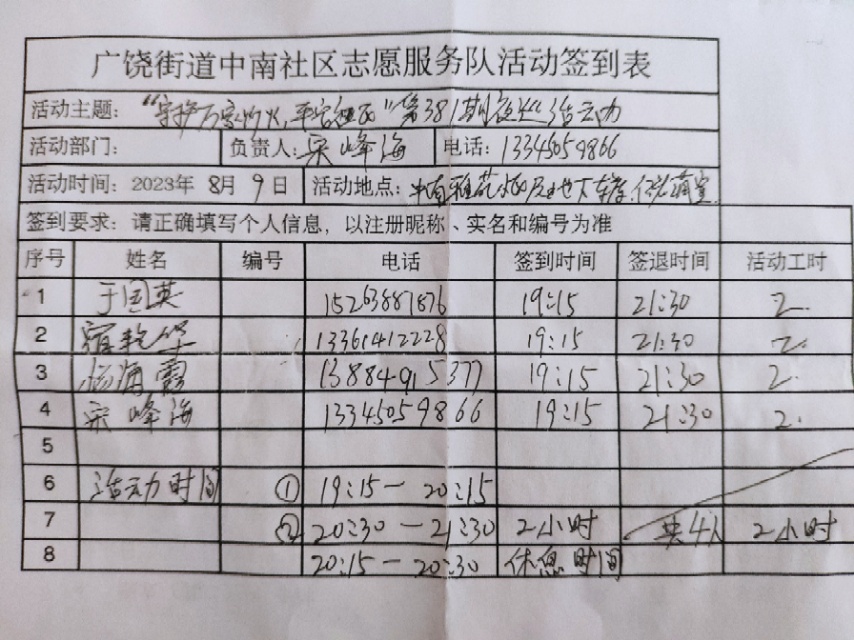 广饶街道中南社区志愿服务队活动签到表
活动主题："守护万家灯火,平安社区"第381期夜巡活动
活动部门： 负责人：宋峰海 电话：13345059866
活动时间：2023年 8月 9日 活动地点：中南雅苑小区及地下车库
签到要求：请正确填写个人信息，以注册昵称、实名和编号为准
序号 姓名 编号 电话 签到时间 签退时间 活动工时
1 于国英 15263887876 19:15 21:30 2.
2 13361412228 19:15 21:30 2.
3 杨海霞 13884915377 19:15 21:30 2.
4 宋峰海 13345059866 19:15 21:30 2.
5
6 活动时间 ① 19:15—20:15
7 ② 20:30—21:30 2小时 共4人 2小时
8 20:15—20:30 休息时间